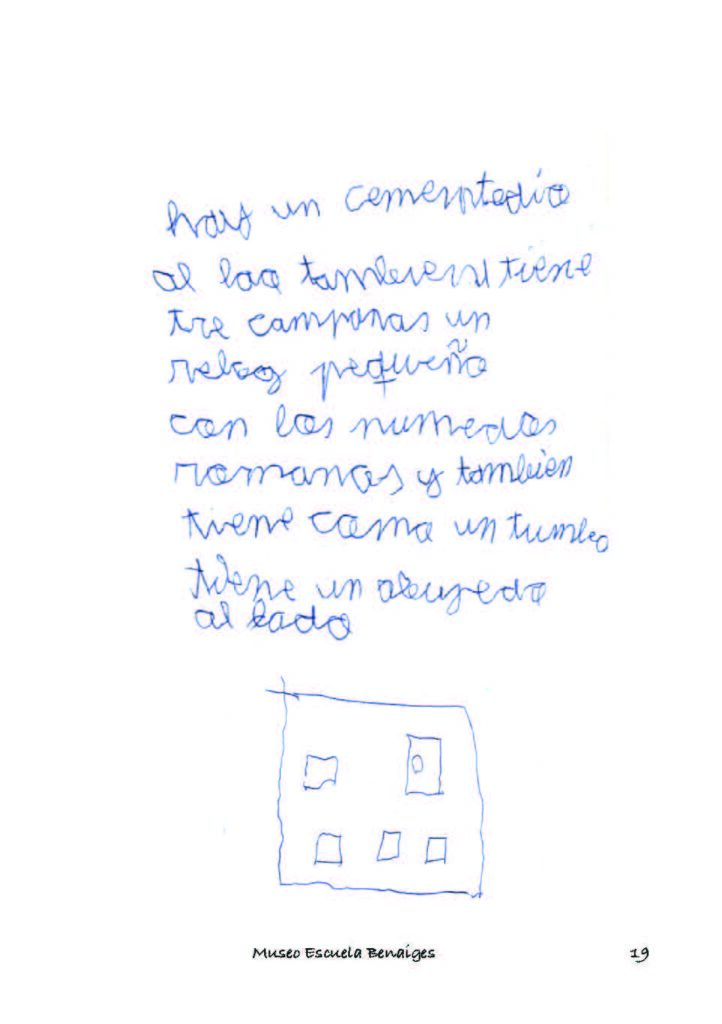 hay un cemenptedio
al lao tambienn tiene
tre campanas un
reloog pequeño
con los numedos
romanos y tambien
tiene como un tumbo
tiene un abujedo
al lado
Museo Escuela Benaiges 19